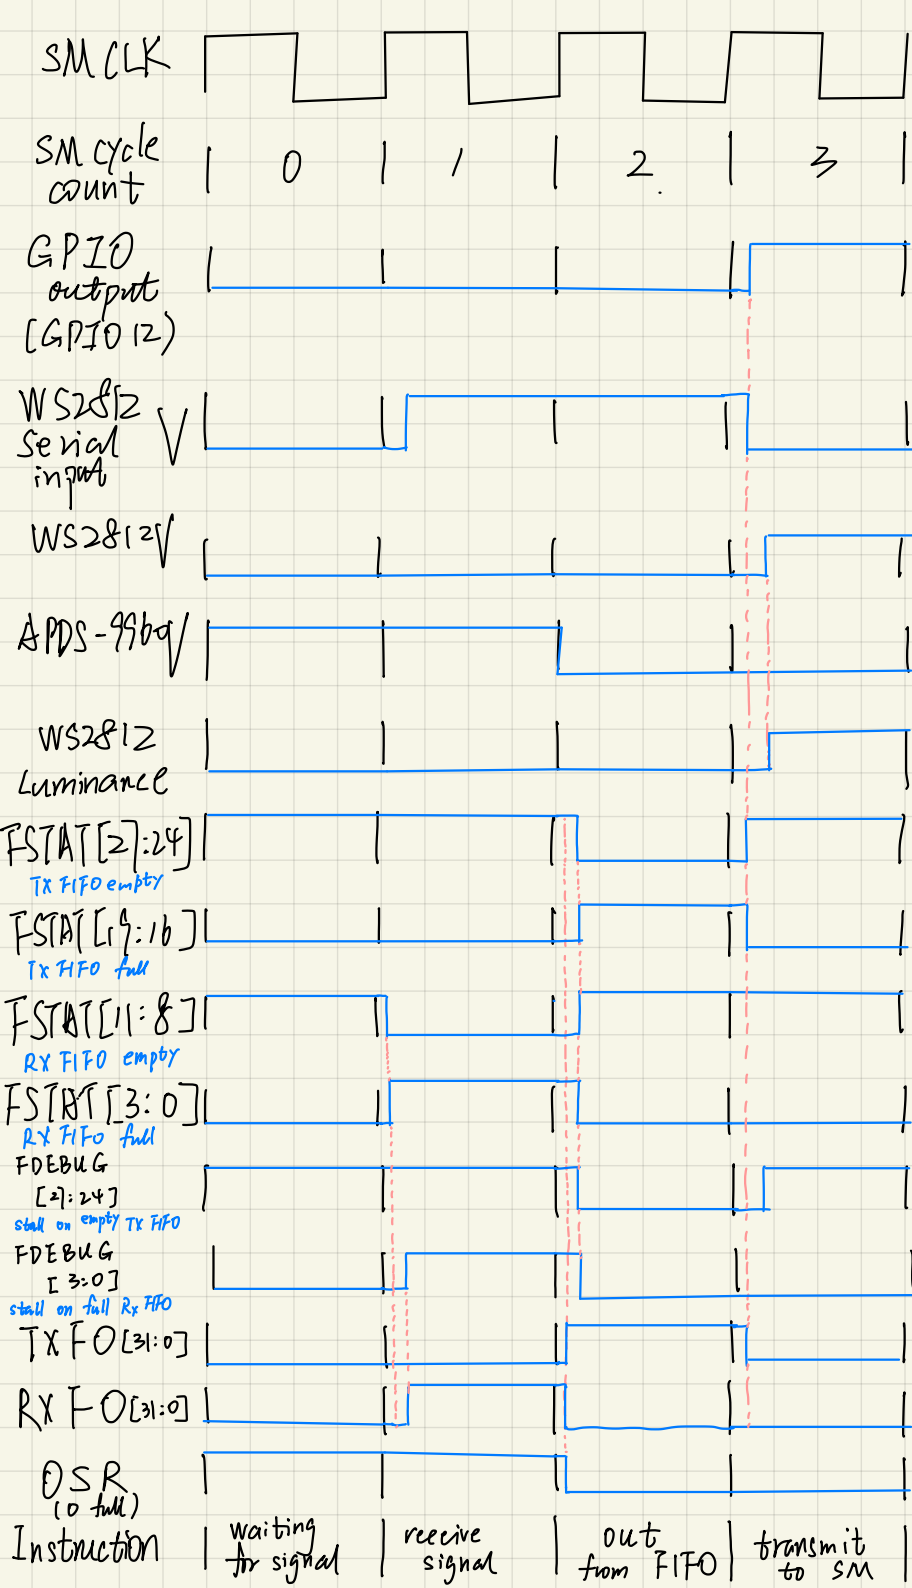 SM CLK
SM cycle
count
0 1 2. 3
GPIO
output
(GPIO 12)
WS2812 V
Serial
input
WS2812V
APDS-9960V
WS2812
Luminance
FSTAT[27:24]
TX FIFO empty
FSTAT[19:16]
TX FIFO full
FSTAT[11:8]
RX FIFO empty
FSTAT[3:0]
RX FIFO full
FDEBUG
[27:24]
stall on empty TX FIFO
FDEBUG
[3:0]
stall on full Rx FIFO
TXFO[31:0]
RXFO[31:0]
OSR
(0 full)
Instruction
waiting
for signal
receive
signal
out
from FIFO
transmit
to SM